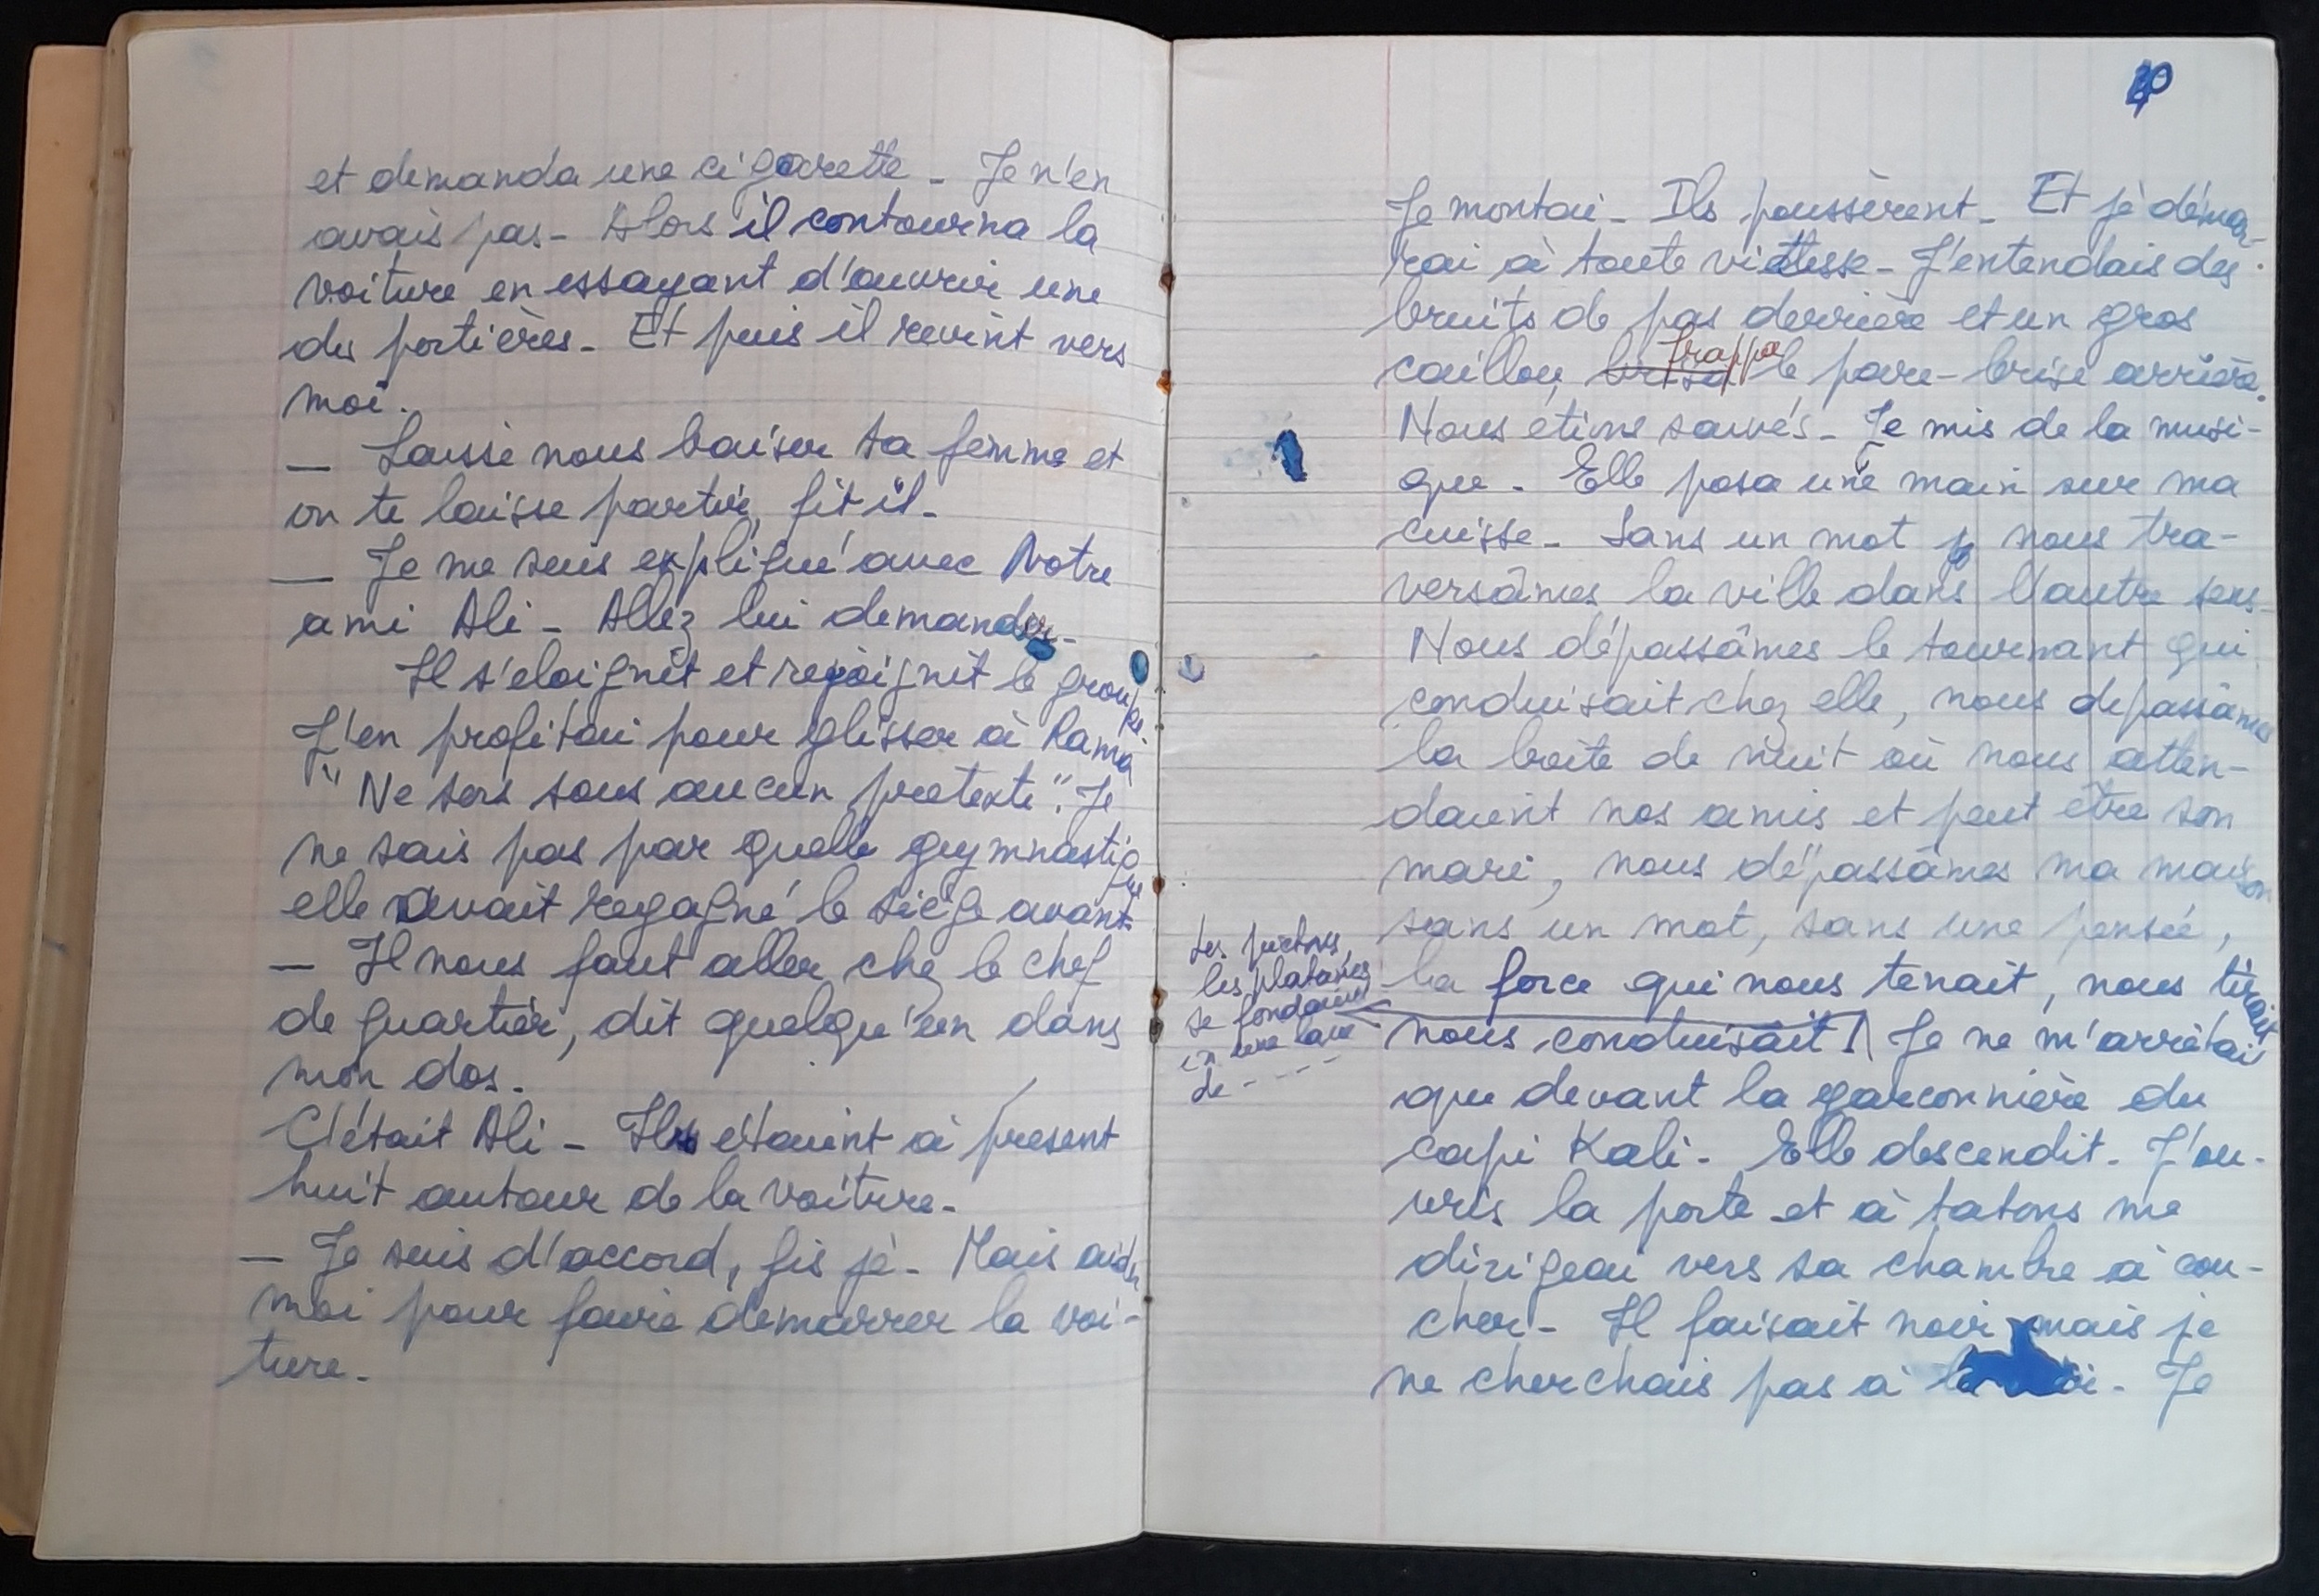 et demanda une cigarette - Je n'en
avais pas - Alors il contourna la
voiture en essayant d'ouvrir une
des portières - Et puis il revint vers
moi.
— Laisse nous baiser ta femme et
on te laisse partir, fit il -
— Je me suis expliqué avec Notre
ami Ali - Allez lui demander -
Il s'eloignit et rejoignit le groupe
J'en profitai pour glisser à Rama
"Ne sors sous aucun pretexte". Je
ne sais pas par quelle gymnastique
elle avait regagné le siège avant.
— Il nous faut aller chez le chef
de quartier, dit quelqu'un dans
mon dos.
C'était Ali - Ils étaient à présent
huit autour de la voiture -
— Je suis d'accord, fis je - Mais aidez
moi pour faire démarrer la voi-
ture -
20
Je montai - Ils poussèrent - Et je démar-
rai à toute vitesse - J'entendais des
bruits de pas derrière et un gros
caillou brisa frappa le pare-brise arrière.
Nous étions sauvés - Je mis de la musi-
que - Elle posa une main sur ma
cuisse - Sans un mot nous tra-
versâmes la ville dans l'autre sens -
Nous dépassâmes le tournant qui
conduisait chez elle, nous depassâmes
la boîte de nuit où nous atten-
daient nos amis et peut être son
mari, nous dépassâmes ma maison
sans un mot, sans une pensée,
la force qui nous tenait, nous tirait
nous conduisait. Je ne m'arrêtai
que devant la garconnière du
capi Kali - Elle descendit - J'ou-
vris la porte et à tatons me
dirigeai vers sa chambre à cou-
cher - Il faisait noir mais je
ne cherchais pas à - Je
Les
les platanes
se fondaient
en une lave
de - - - -